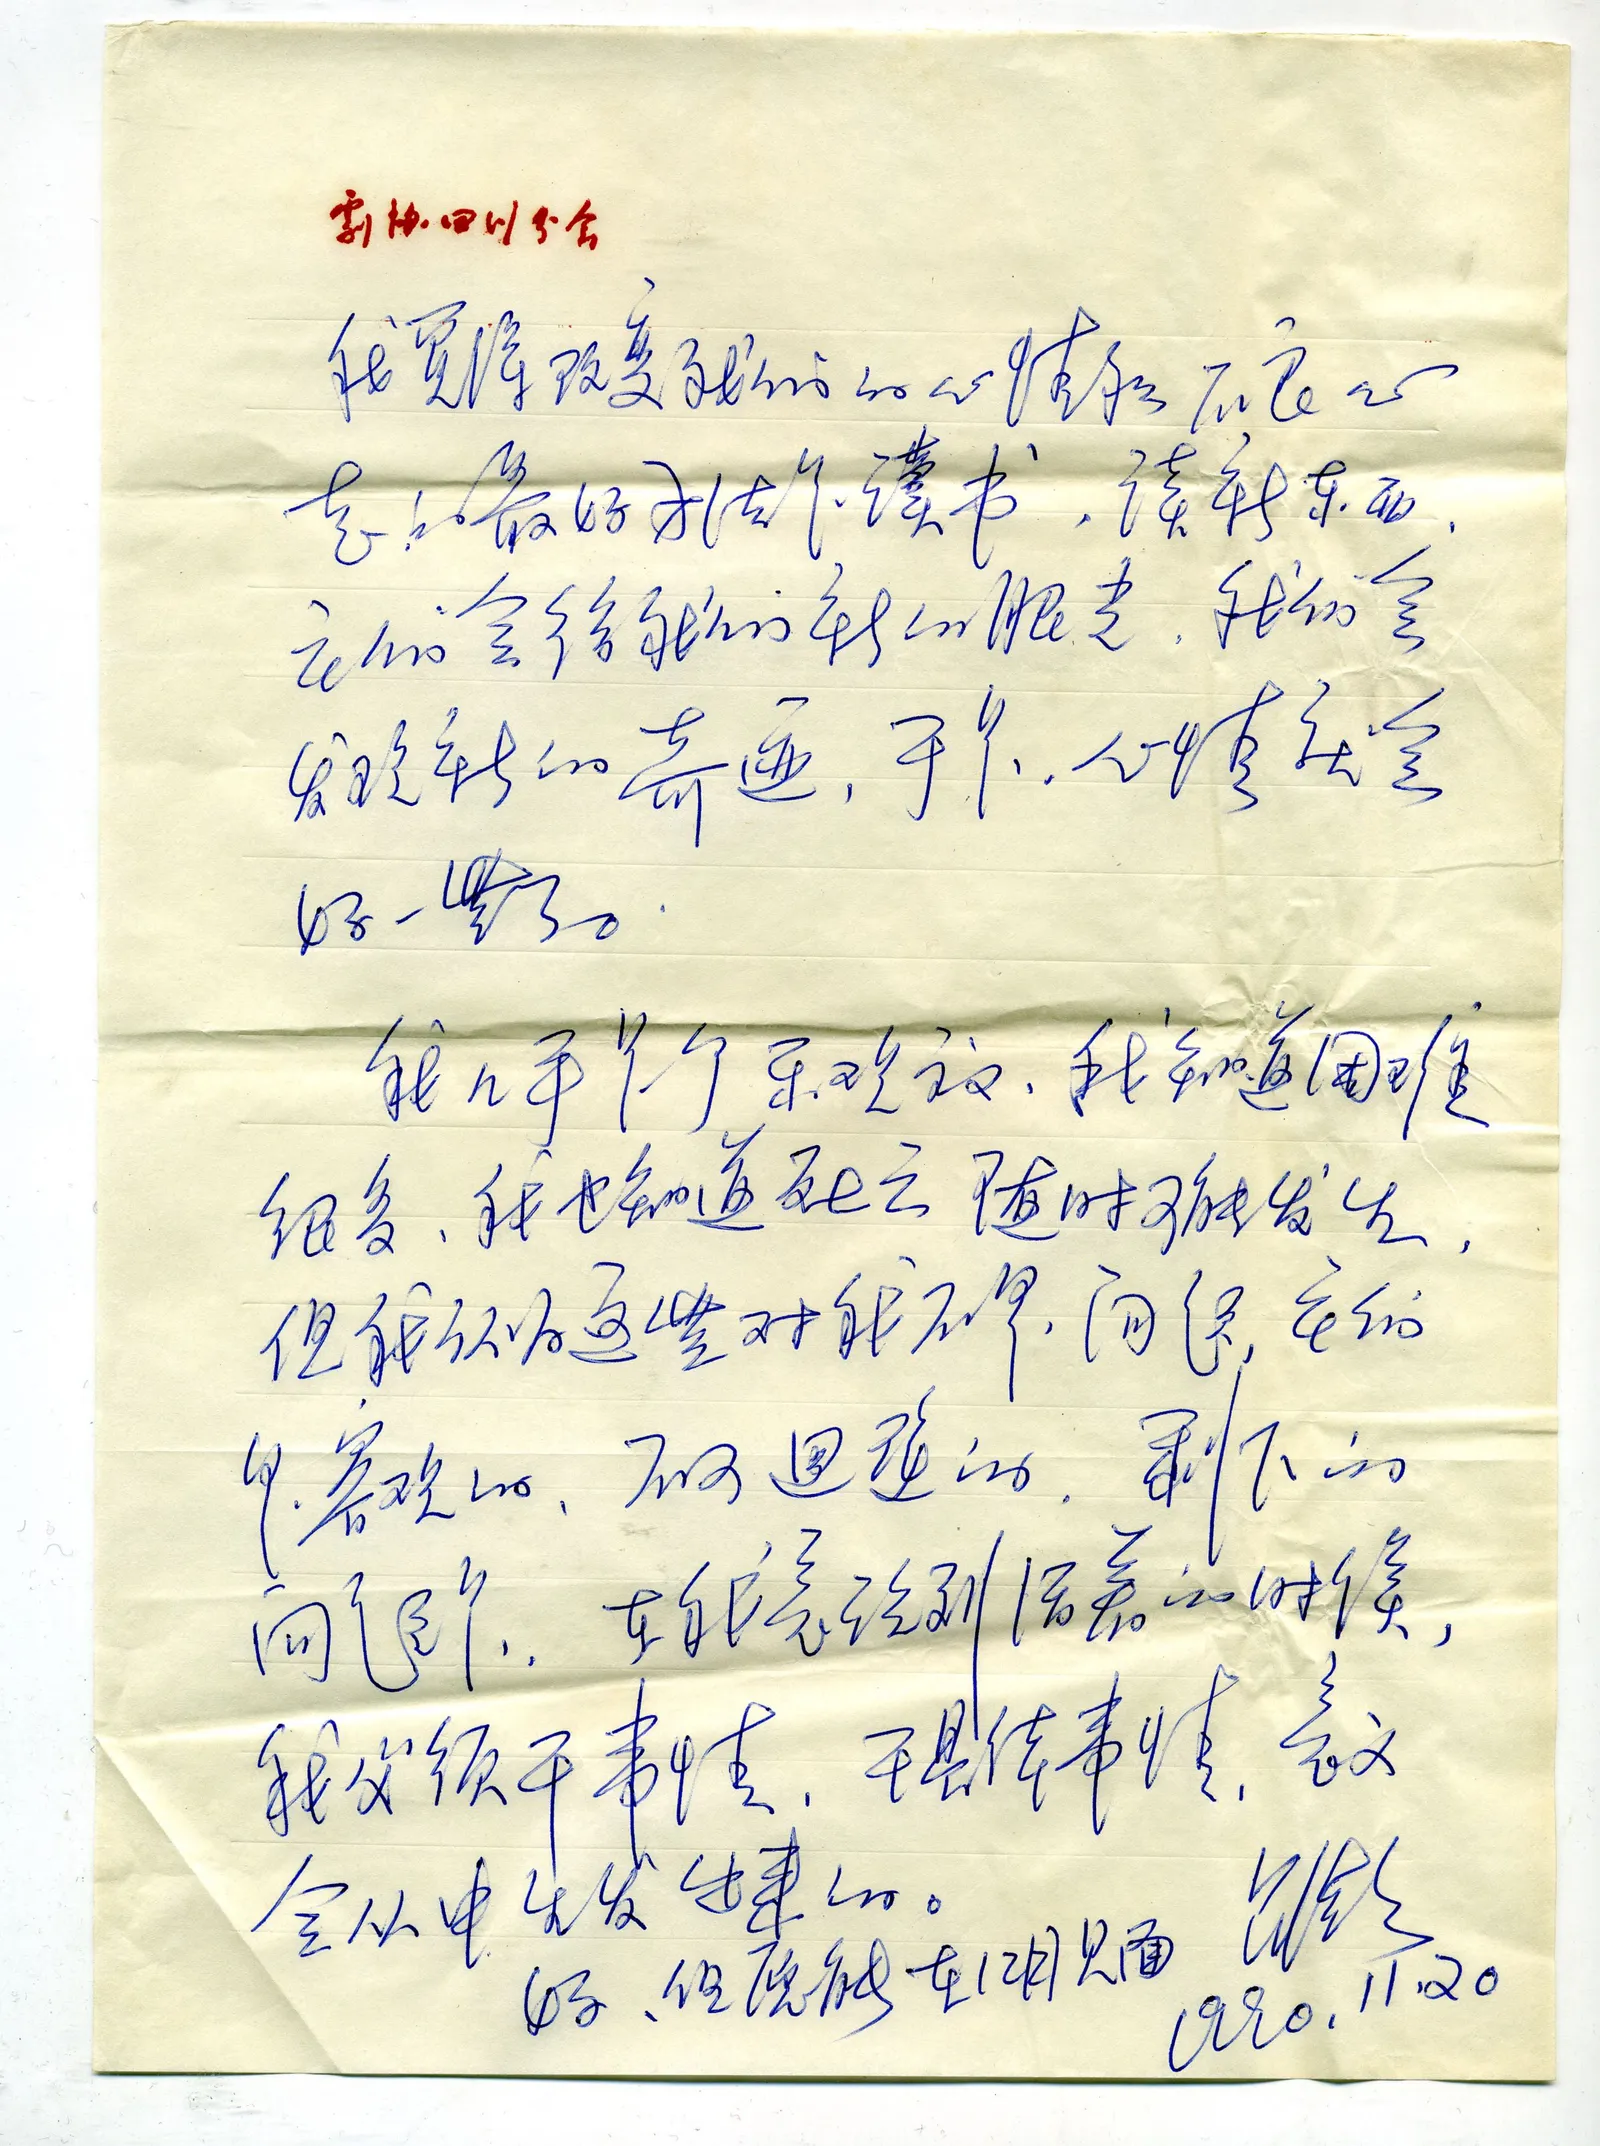 剧协四川分会
我觉得改变我们的心情和不良心
意的最好办法是读书，读新东西，
它们会给我们新的眼光，我们会
发现新的奇迹，于是，心情就会
好一点了。
我几乎是个乐观主义，我知道困难
很多，我也知道死亡随时可能发生，
但我认为这些对我不是问题，它们
是客观的，不可回避的，剩下的
问题是，在我意识到活着的时候，
我必须干事情，干具体事情，意义
会从中生发出来的。
好，但愿能在12月见面
1990.11.20